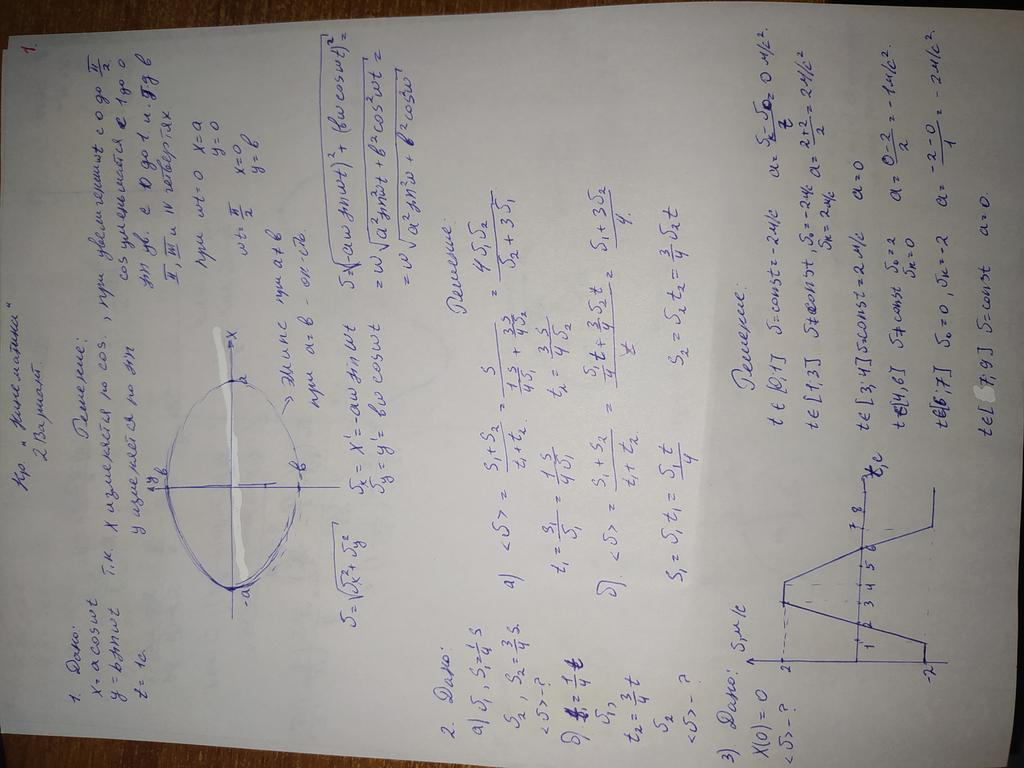 1
Кр. "Кинематика"
2 Вариант.
1. Дано:
x = a cos ωt
y = b sin ωt
t = 1с.
Решение:
т.к. x изменяется по cos., при увеличении t с 0 до π/2
y изменяется по sin cos уменьшается с 1 до 0
sin ув. с 0 до 1. и. т.д в
II, III и IV четвертях.
При ωt = 0 x = a
y = 0
ωt = π/2 x = 0
y = b
y b
-a a x
-b
эллипс при a ≠ b
при a = b - окр-ть.
υ = √(υx² + υy²)
υx = x' = -aω sin ωt
υy = y' = bω cos ωt
υ = √((-aω sin ωt)² + (bω cos ωt)²) =
= ω √(a² sin² ωt + b² cos² ωt) =
= ω √(a² sin² ω + b² cos² ω)
2. Дано:
а) υ1, S1 = 1/4 S
υ2, S2 = 3/4 S.
<υ> - ?
б) t1 = 1/4 t
υ1,
t2 = 3/4 t
υ2
<υ> - ?
Решение:
а) <υ> = (S1 + S2)/(t1 + t2) = S/(1S/4υ1 + 3S/4υ2) = 4υ1υ2/(υ2 + 3υ1)
t1 = S1/υ1 = 1S/4υ1 t2 = 3S/4υ2
б). <υ> = (S1 + S2)/(t1 + t2) = (υ1/4 t + 3/4 υ2 t)/t = (υ1 + 3υ2)/4.
S1 = υ1 t1 = υ1 t/4 S2 = υ2 t2 = 3/4 υ2 t
3) Дано:
X(0) = 0
<υ> - ?
υ, м/с
2
1 2 3 4 5 6 7 8 t, с
-2
Решение:
t ∈ [0,1] υ = const = -2 м/с a = (υ - υ0)/t = 0 м/с².
t ∈ [1,3] υ ≠ const, υ0 = -2 м/с a = (2+2)/2 = 2 м/с²
υк = 2 м/с
t ∈ [3,4] υ = const = 2 м/с a = 0
t ∈ [4,6] υ ≠ const υ0 = 2 a = (0-2)/2 = -1 м/с².
υк = 0
t ∈ [6,7] υ0 = 0, υк = -2 a = (-2-0)/1 = -2 м/с².
t ∈ [7,9] υ = const a = 0.